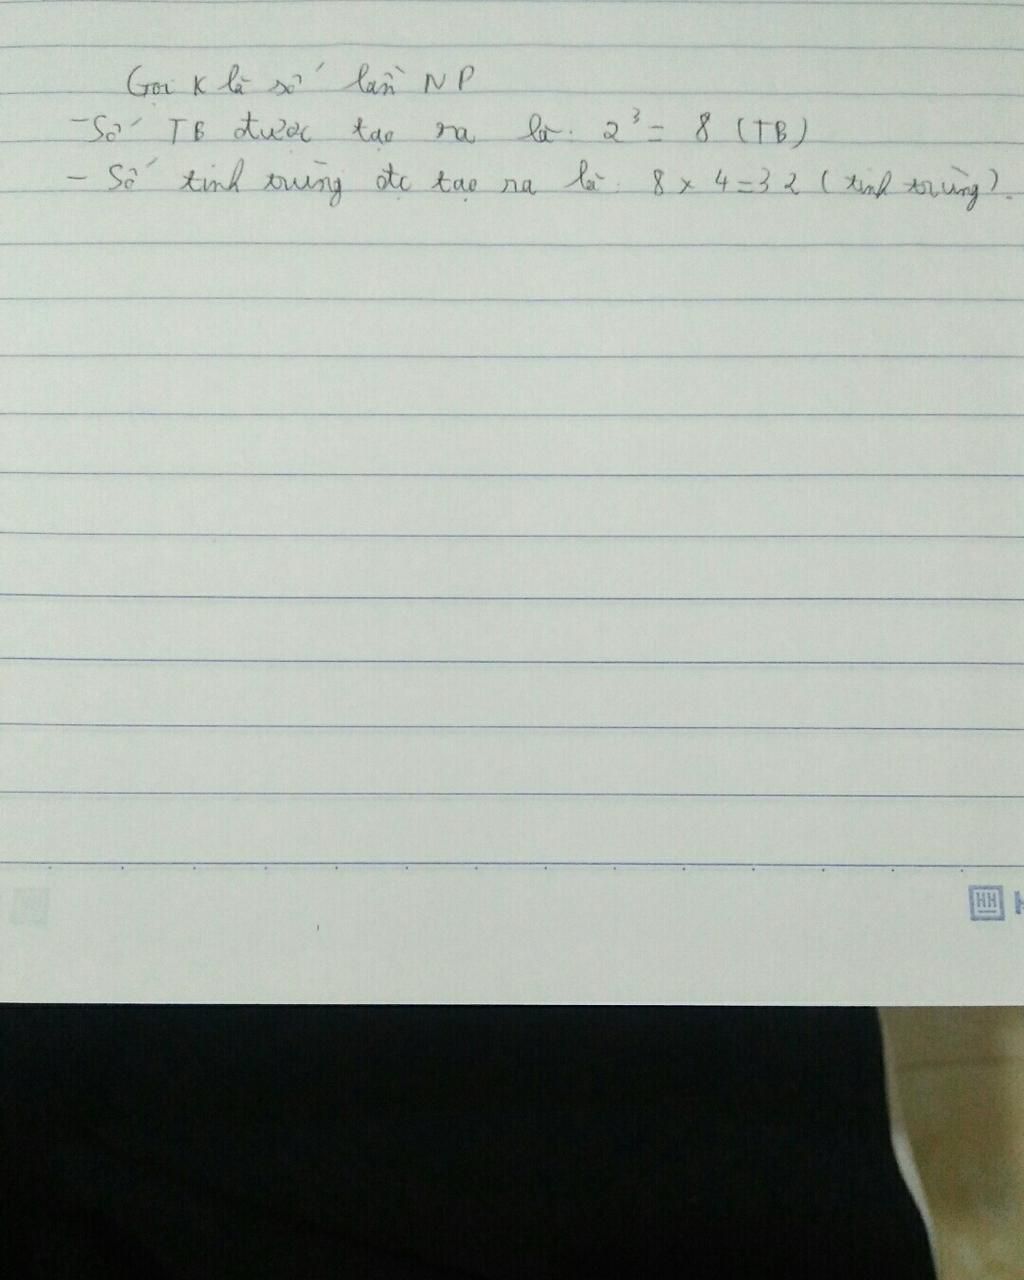 Gọi K là số lần NP
- Số TB được tạo ra là: 2³ = 8 (TB)
- Số tinh trùng đc tạo ra là: 8 x 4 = 32 (tinh trùng).
HH